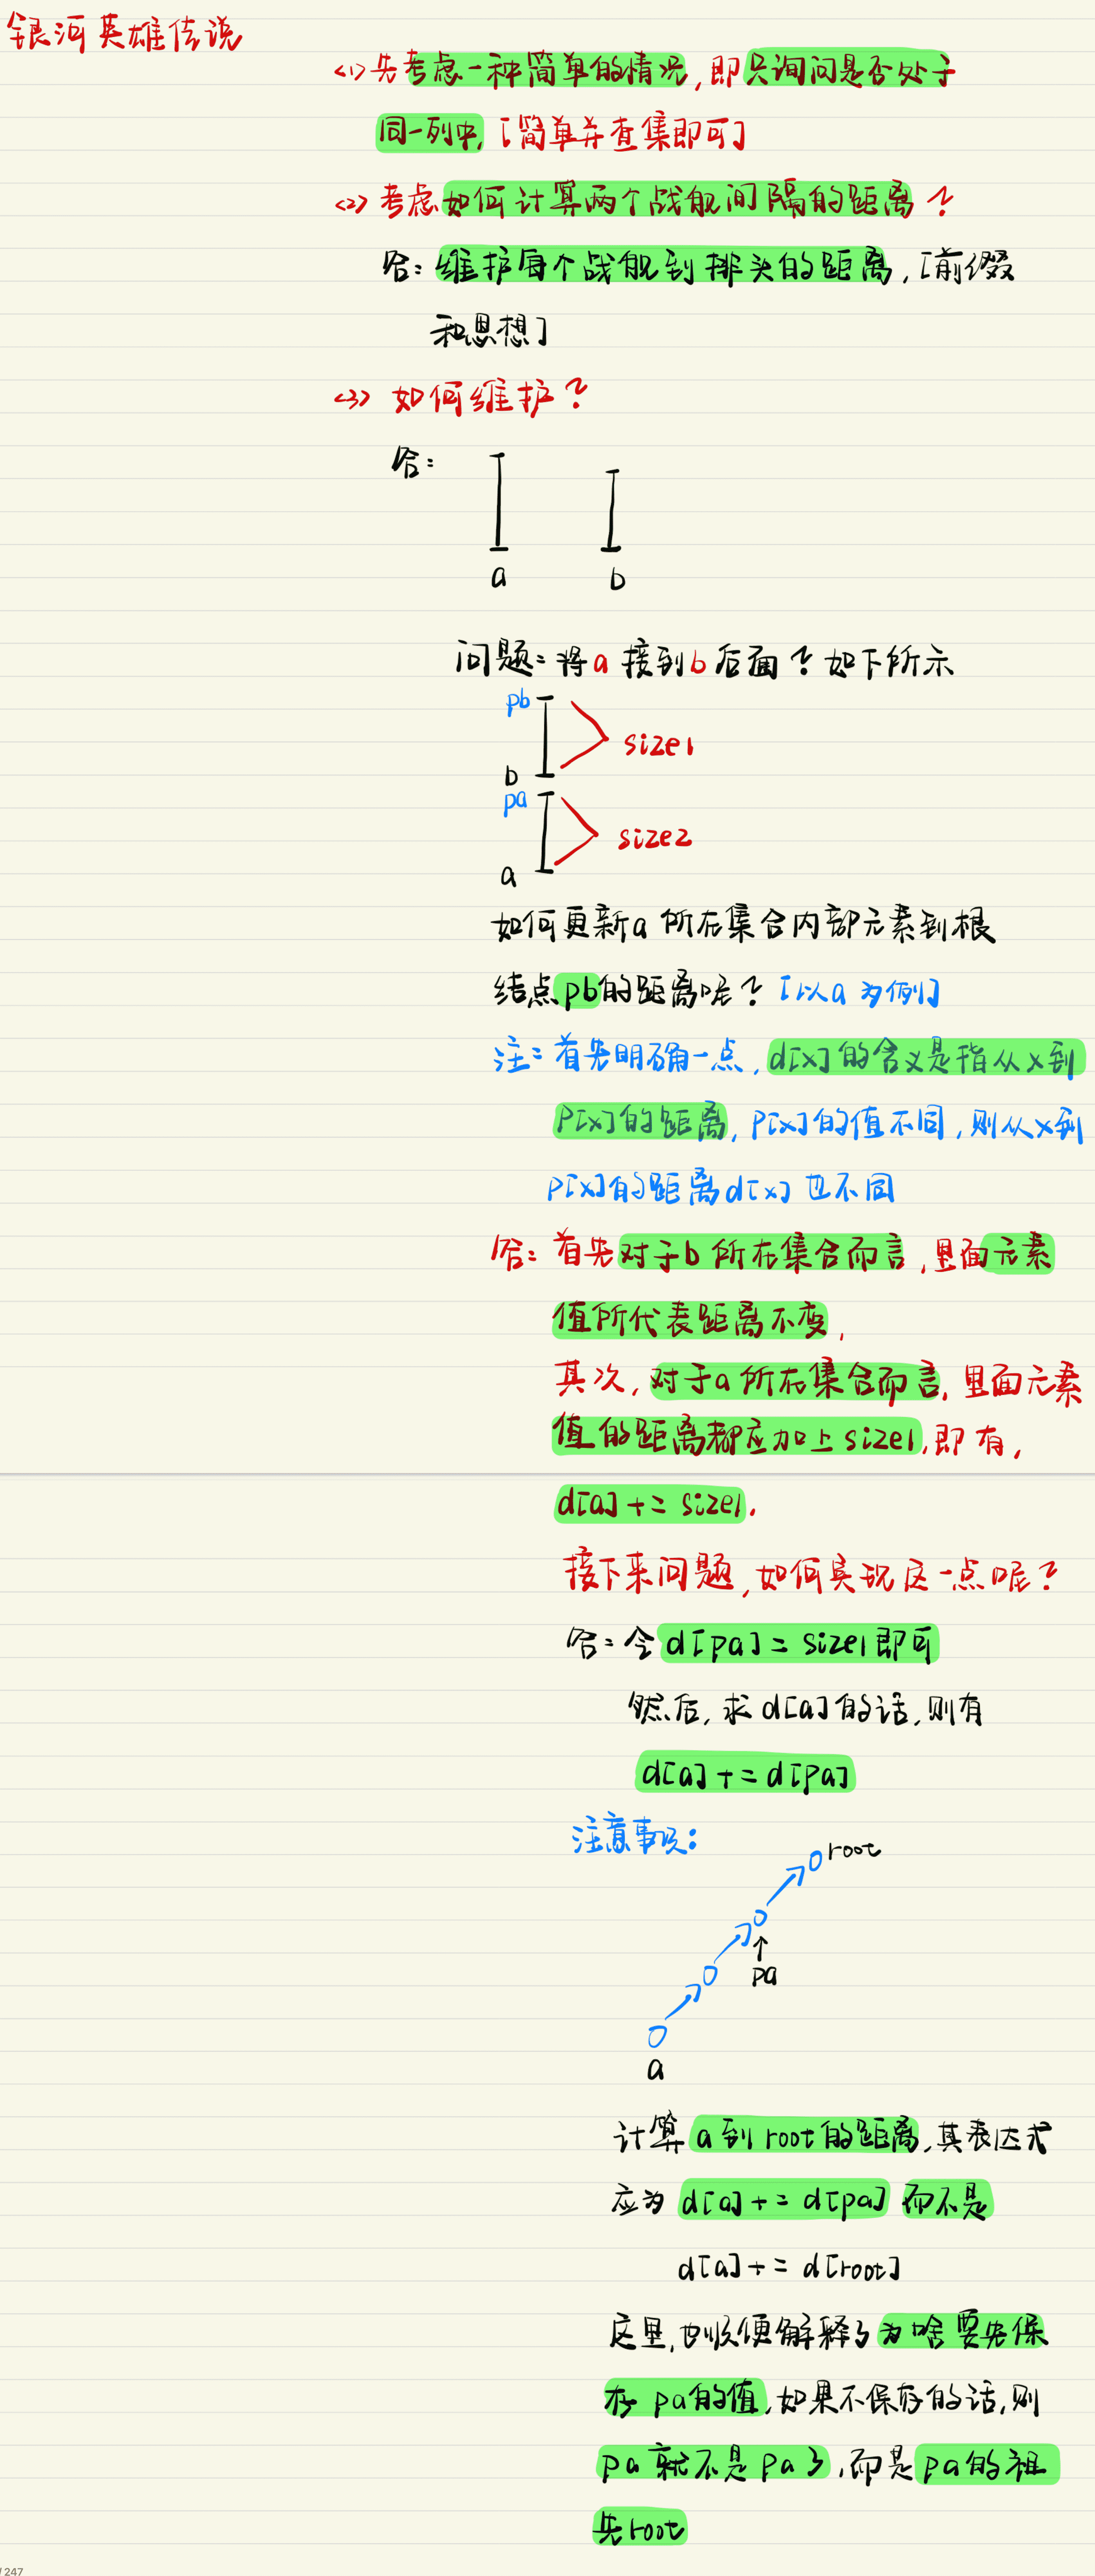 银河英雄传说
<1> 先考虑一种简单的情况,即只询问是否处于
同一列中,[简单并查集即可]
<2> 考虑如何计算两个战舰间隔的距离?
答: 维护每个战舰到排头的距离,[前缀
和思想]
<3> 如何维护?
答:
a
b
问题: 将a接到b后面? 如下所示
pb
size1
b
pa
size2
a
如何更新a所在集合内部元素到根
结点pb的距离呢? [以a为例]
注: 首先明确一点,d[x]的含义是指从x到
P[x]的距离,P[x]的值不同,则从x到
P[x]的距离d[x]也不同
答: 首先对于b所在集合而言,里面元素
值所代表距离不变,
其次,对于a所在集合而言,里面元素
值的距离都应加上size1,即有,
d[a] += size1.
接下来问题,如何实现这一点呢?
答: 令d[pa] = size1即可
然后,求d[a]的话,则有
d[a] += d[pa]
注意事项:
root
pa
a
计算a到root的距离,其表达式
应为 d[a] += d[pa] 而不是
d[a] += d[root]
这里,也顺便解释了为啥要先保
存pa的值,如果不保存的话,则
pa就不是pa了,而是pa的祖
先root
/ 247